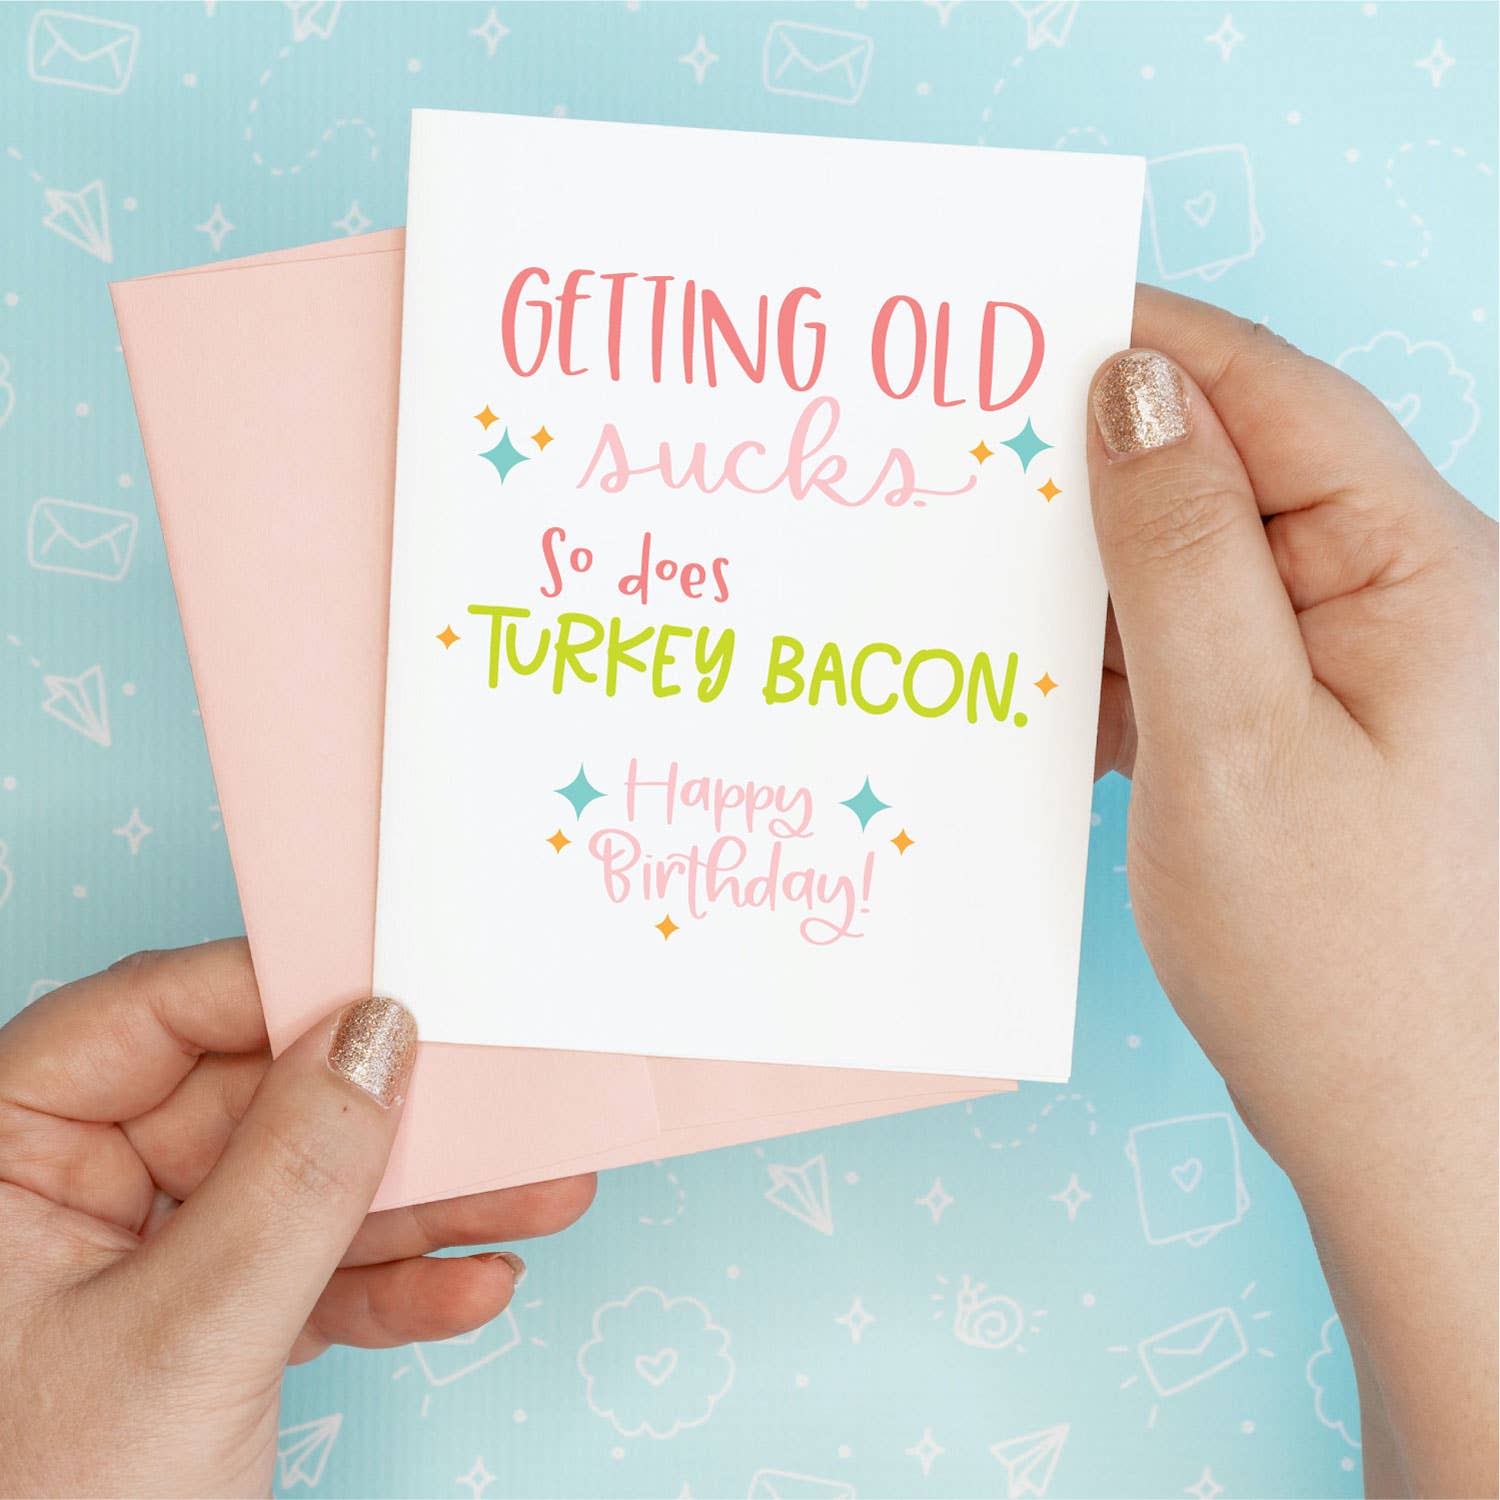 GETTING OLD
sucks.
So does
TURKEY BACON.
Happy
Birthday!